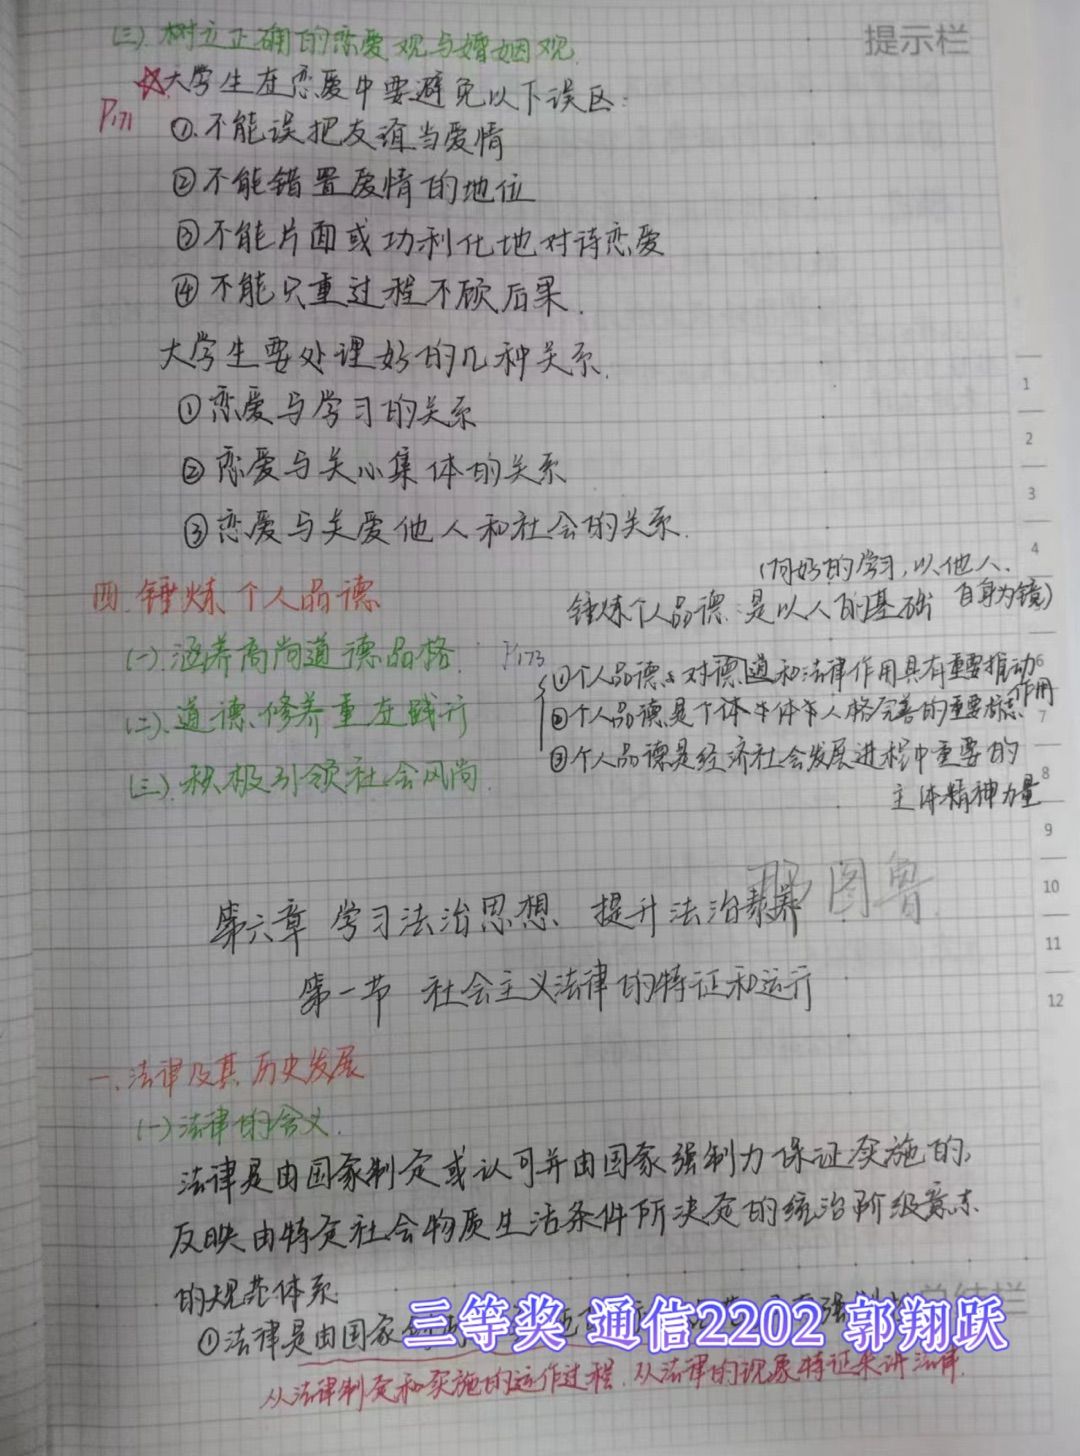 提示栏
(三).树立正确的恋爱观与婚姻观.
☆大学生在恋爱中要避免以下误区:
P171
①.不能误把友谊当爱情
②不能错置爱情的地位
③不能片面或功利化地对待恋爱
④不能只重过程不顾后果.
大学生要处理好的几种关系.
①恋爱与学习的关系
②恋爱与关心集体的关系
③恋爱与关爱他人和社会的关系.
四.锤炼个人品德
(向好的学习,以他人.
自身为镜)
锤炼个人品德:是以人的基础
(一).涵养高尚道德品格.
P173
(二).道德修养重在践行
(三).积极引领社会风尚.
①个人品德 对德道和法律作用具有重要推动
作用
②个人品德是个体 人格完善的重要标志
③个人品德是经济社会发展进程中重要的
主体精神力量
1
2
3
4
6
7
8
9
10
11
12
图鲁
第六章 学习法治思想、提升法治素养
第一节 社会主义法律的特征和运行
一.法律及其历史发展
(一)法律的含义.
法律是由国家制定或认可并由国家强制力保证实施的,
反映由特定社会物质生活条件所决定的统治阶级意志
的规范体系
①法律是由国家
三等奖 通信2202 郭翔跃
从法律制定和实施的运作过程.从法律的现象特征来讲法律.